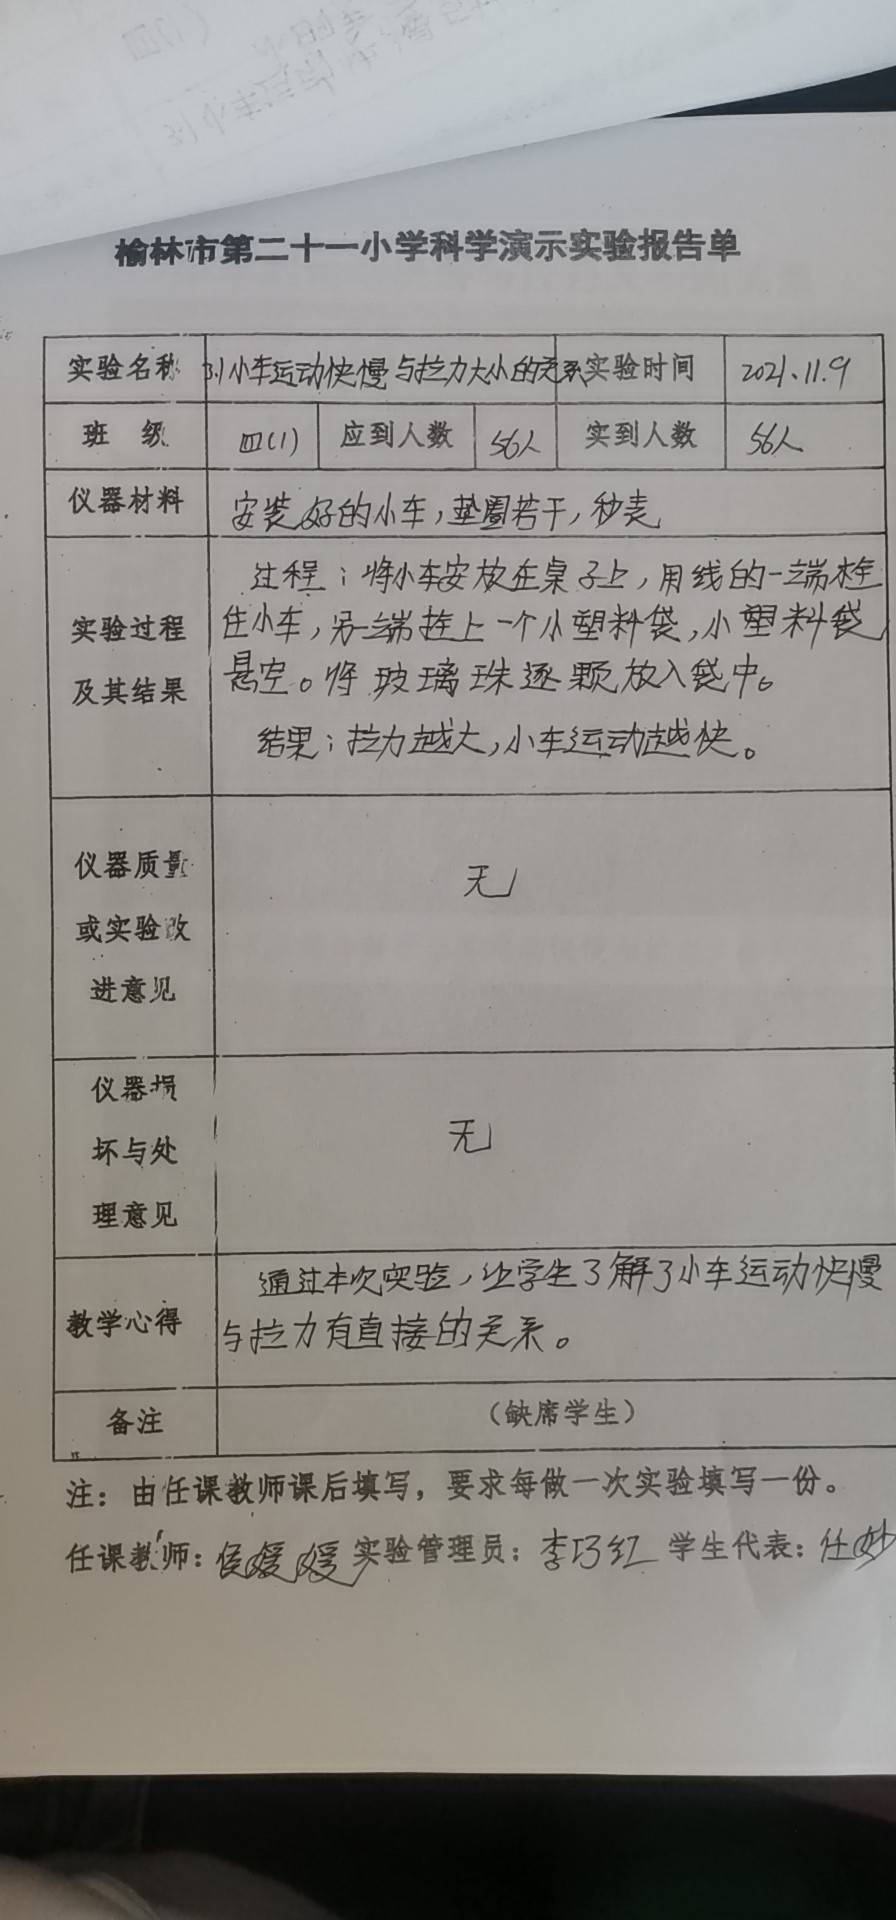 榆林市第二十一小学科学演示实验报告单
实验名称 3.1小车运动快慢与拉力大小的关系 实验时间 2021.11.9
班 级 四(1) 应到人数 56人 实到人数 56人
仪器材料 安装好的小车,垫圈若干,秒表
实验过程
及其结果
过程:将小车安放在桌子上,用线的一端栓
住小车,另一端拴上一个小塑料袋,小塑料袋
悬空。将玻璃珠逐颗放入袋中。
结果:拉力越大,小车运动越快。
仪器质量
或实验改
进意见
无
仪器损
坏与处
理意见
无
教学心得
通过本次实验,让学生了解了小车运动快慢
与拉力有直接的关系。
备注 (缺席学生)
注：由任课教师课后填写，要求每做一次实验填写一份。
任课教师：侯媛媛 实验管理员：李巧红 学生代表：任妙